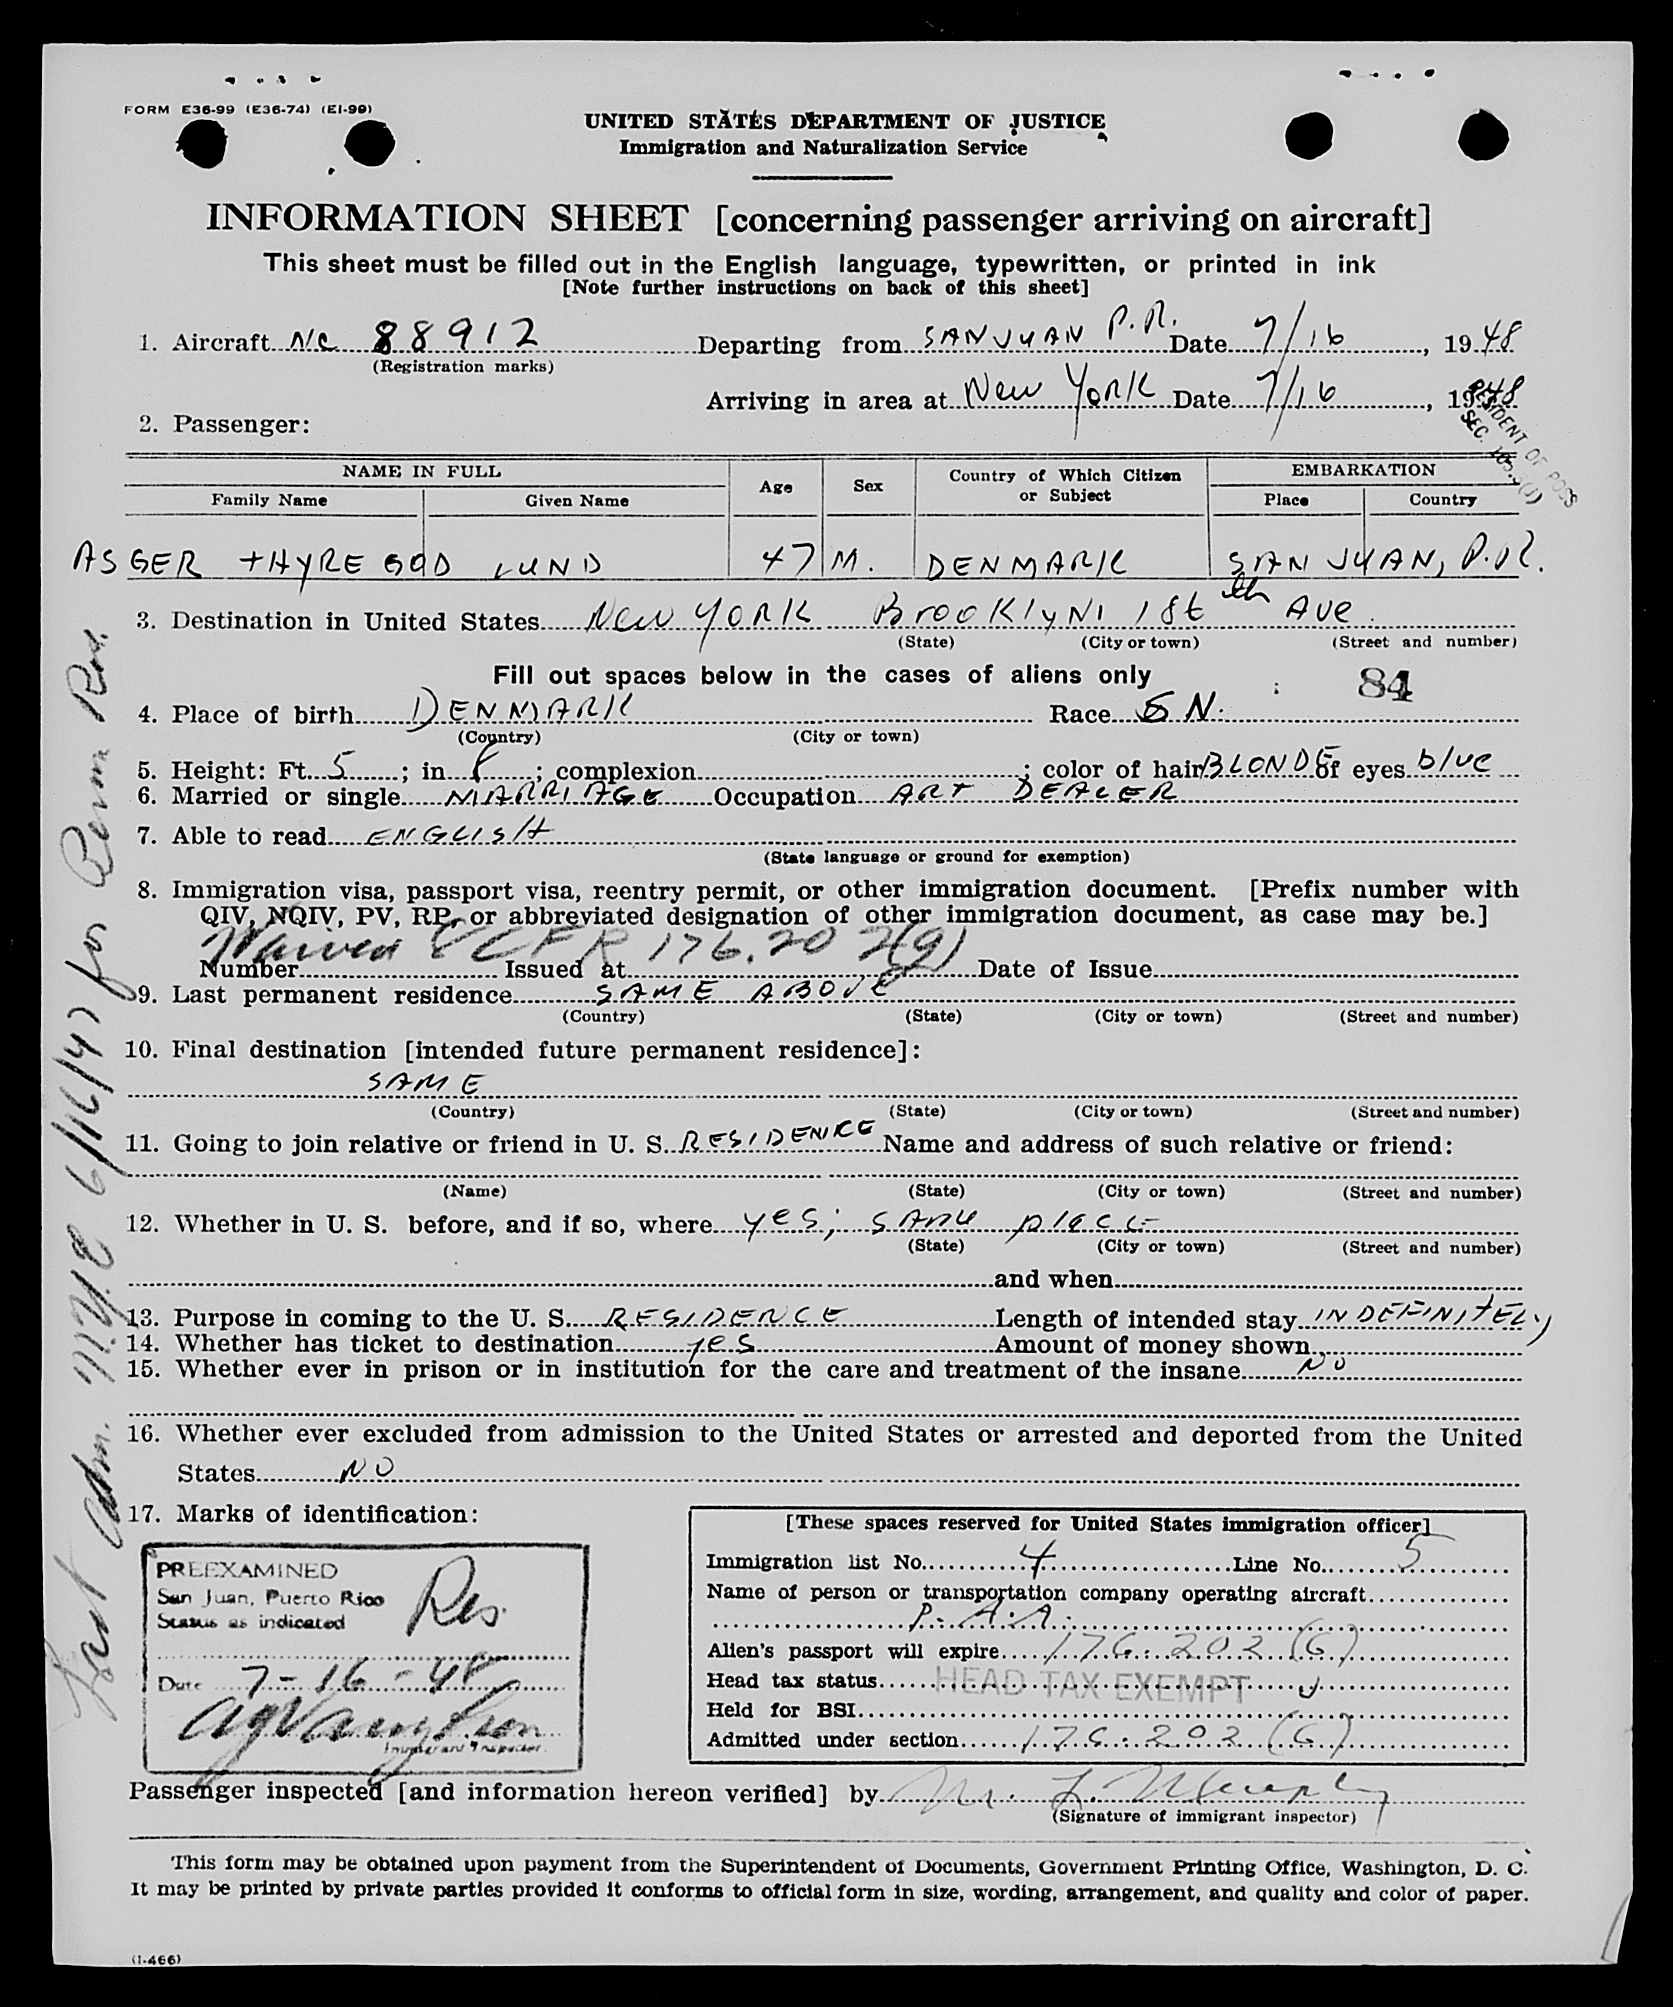 FORM E36-99 (E36-74) (EI-99)
UNITED STATES DEPARTMENT OF JUSTICE
Immigration and Naturalization Service
INFORMATION SHEET [concerning passenger arriving on aircraft]
This sheet must be filled out in the English language, typewritten, or printed in ink
[Note further instructions on back of this sheet]
1. Aircraft N/C 88912 Departing from SAN JUAN P.R. Date 7/16, 1948
(Registration marks)
Arriving in area at New York Date 7/16, 1948
RESIDENT OF POSS
SEC.
2. Passenger:
NAME IN FULL Age Sex Country of Which Citizen or Subject EMBARKATION
Family Name Given Name Place Country
ASGER THYREGOD LUND 47 M. DENMARK SAN JUAN, P.R.
3. Destination in United States New York Brooklyn 18t th Ave.
(State) (City or town) (Street and number)
Fill out spaces below in the cases of aliens only
84
4. Place of birth DENMARK Race N.
(Country) (City or town)
5. Height: Ft. 5; in.; complexion; color of hair BLONDE of eyes blue
6. Married or single MARRIAGE Occupation ART DEALER
7. Able to read ENGLISH
(State language or ground for exemption)
8. Immigration visa, passport visa, reentry permit, or other immigration document. [Prefix number with
QIV, NQIV, PV, RP, or abbreviated designation of other immigration document, as case may be.]
Waived 8 CFR 176.202(g)
Number Issued at Date of Issue
9. Last permanent residence SAME ABOVE
(Country) (State) (City or town) (Street and number)
10. Final destination [intended future permanent residence]:
SAME
(Country) (State) (City or town) (Street and number)
11. Going to join relative or friend in U. S. RESIDENCE Name and address of such relative or friend:
(Name) (State) (City or town) (Street and number)
12. Whether in U. S. before, and if so, where yes; same place
(State) (City or town) (Street and number)
and when
13. Purpose in coming to the U. S. RESIDENCE Length of intended stay INDEFINITELY
14. Whether has ticket to destination yes Amount of money shown
15. Whether ever in prison or in institution for the care and treatment of the insane NO
16. Whether ever excluded from admission to the United States or arrested and deported from the United
States NO
17. Marks of identification:
PREEXAMINED
San Juan, Puerto Rico
Status as indicated
Res.
Date 7-16-48
Immigrant Inspector
[These spaces reserved for United States immigration officer]
Immigration list No. 4 Line No. 5
Name of person or transportation company operating aircraft
P.A.A.
Alien's passport will expire 176.202(G)
Head tax status HEAD TAX EXEMPT
Held for BSI
Admitted under section 176.202(G)
Passenger inspected [and information hereon verified] by M. L. Murphy
(Signature of immigrant inspector)
This form may be obtained upon payment from the Superintendent of Documents, Government Printing Office, Washington, D. C.
It may be printed by private parties provided it conforms to official form in size, wording, arrangement, and quality and color of paper.
(1-466)
Last Adm. 6/16/47 for Perm Res.